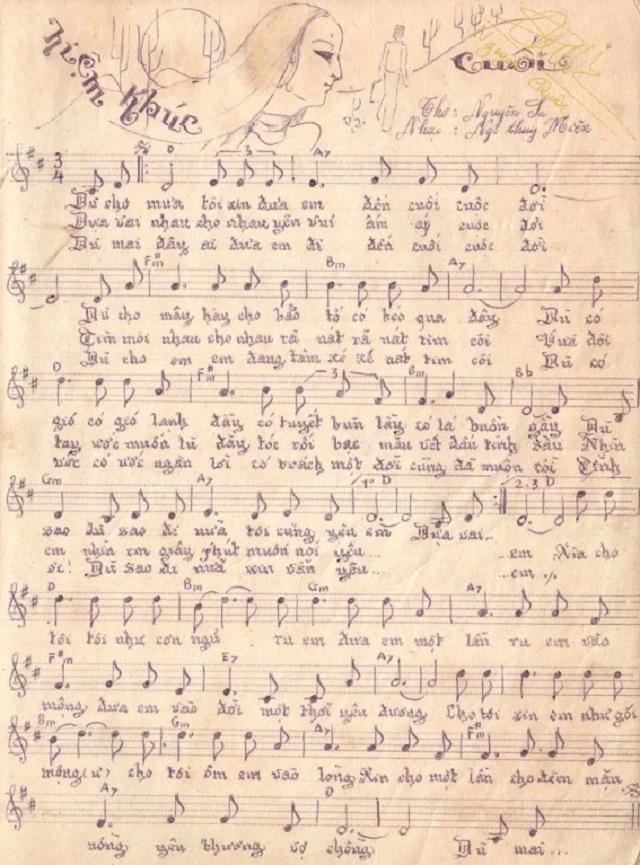 Niệm Khúc Cuối
Thơ: Nguyễn Sa
Nhạc: Ngô Thụy Miên
3 4 D 3 A7
Dù cho mưa tôi xin đưa em đến cuối cuộc đời
Dựa vai nhau cho nhau yên vui ấm áp cuộc đời
Dù mai đây ai đưa em đi đến cuối cuộc đời
F#m Bm A7
Dù cho mây hay cho bão tố có kéo qua đây Dù có
Tìm môi nhau cho nhau rã nát rã nát tim côi Vừa đôi
Dù cho em em đang tâm xé xé nát tim côi Dù có
D F#m 3 Bm Bb
gió có gió lạnh đầy có tuyết bùn lầy có lá buồn gầy Dù
tay ước muốn tù đầy tóc rối bạc mầu vết dấu tình sầu Nhìn
ước có ước ngàn lời có trách một đời cũng đã muộn rồi Tình
Gm A7 1º D 2.3 D
sao dù sao đi nữa tôi cũng yêu em Dựa vai...
em nhìn em giây phút muốn nói yêu... ...em Xin cho
ơi! Dù sao đi nữa xin vẫn yêu... ...em
D Bm Gm A7
tôi tôi như cơn ngủ ru em đưa em một lần ru em vào
F#m E7 A7
mộng đưa em vào đời một thời yêu đương Cho tôi xin em như gối
Bm Gm A7 F#m
mộng (ư) cho tôi ôm em vào lòng Xin cho một lần cho đêm mặn
A7 D
nồng yêu thương vợ chồng Dù mai...